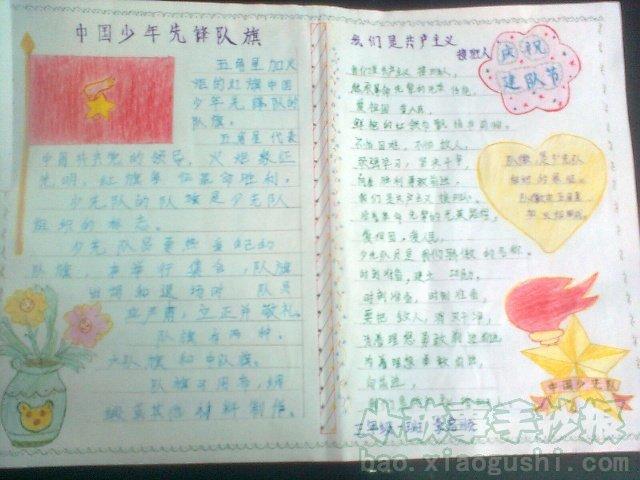 中国少年先锋队旗
五角星加火
炬的红旗中国
少年先锋队的
队旗。
五角星代表
中国共产党的领导，火炬象征
光明，红旗象征革命胜利。
少先队的队旗是少先队
组织的标志。
少先队员要热爱自己的
队旗，在举行集会，队旗
出场和退场时，队员
应严肃，立正并敬礼。
队旗有两种，
大队旗和中队旗。
队旗可用布，绸
缎或其他材料制作。
我们是共产主义
接班人
我们是共产主义接班人，
继承革命先辈的光荣传统，
爱祖国，爱人民，
鲜艳的红领巾飘扬在前胸。
不怕困难，不怕敌人，
顽强学习，坚决斗争，
向着胜利勇敢前进，
我们是共产主义接班人。
沿着革命先辈的光荣路程，
爱祖国，爱人民，
少先队员是我们骄傲的名称。
时刻准备，建立功勋，
时刻准备，时刻准备，
要把敌人，消灭干净，
为着理想勇敢前进，
为着理想勇敢前进，
向前进，
三年级一班
庆祝
建队节
队徽是少先队
中国少先队
小故事手抄报
bao.xiaogushi.com